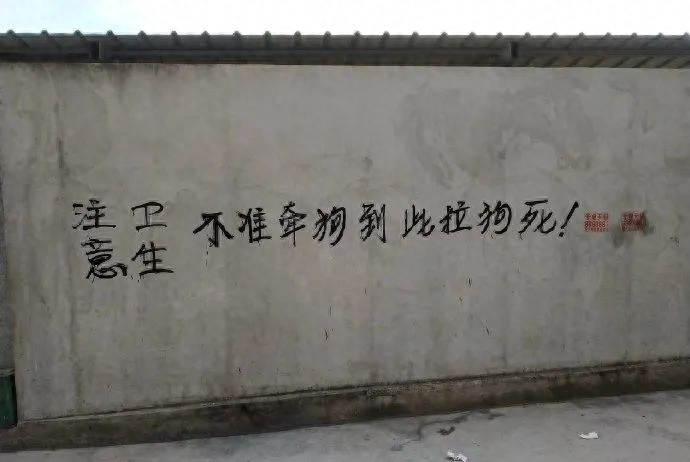 注意卫生
不准牵狗到此拉狗死!